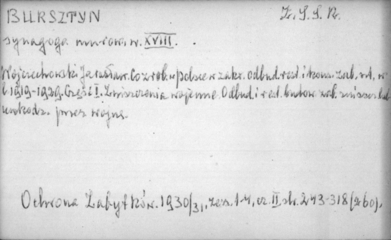 BURSZTYN Z.S.S.R.
synagoga murow. w. XVIII.
Wojciechowski Jarosław. Co zrob. w Polsce w zakr. odbud. rest. i kons. zab. szt. w
l. 1919-1929. Część I. Zniszczenia wojenne. Odbud. i rest. budow. zab. zniszcz. lub
uszkodz. przez wojnę.
Ochrona Zabytków. 1930/31, zesz. 1-4, cz. II, str. 243-318 (260).